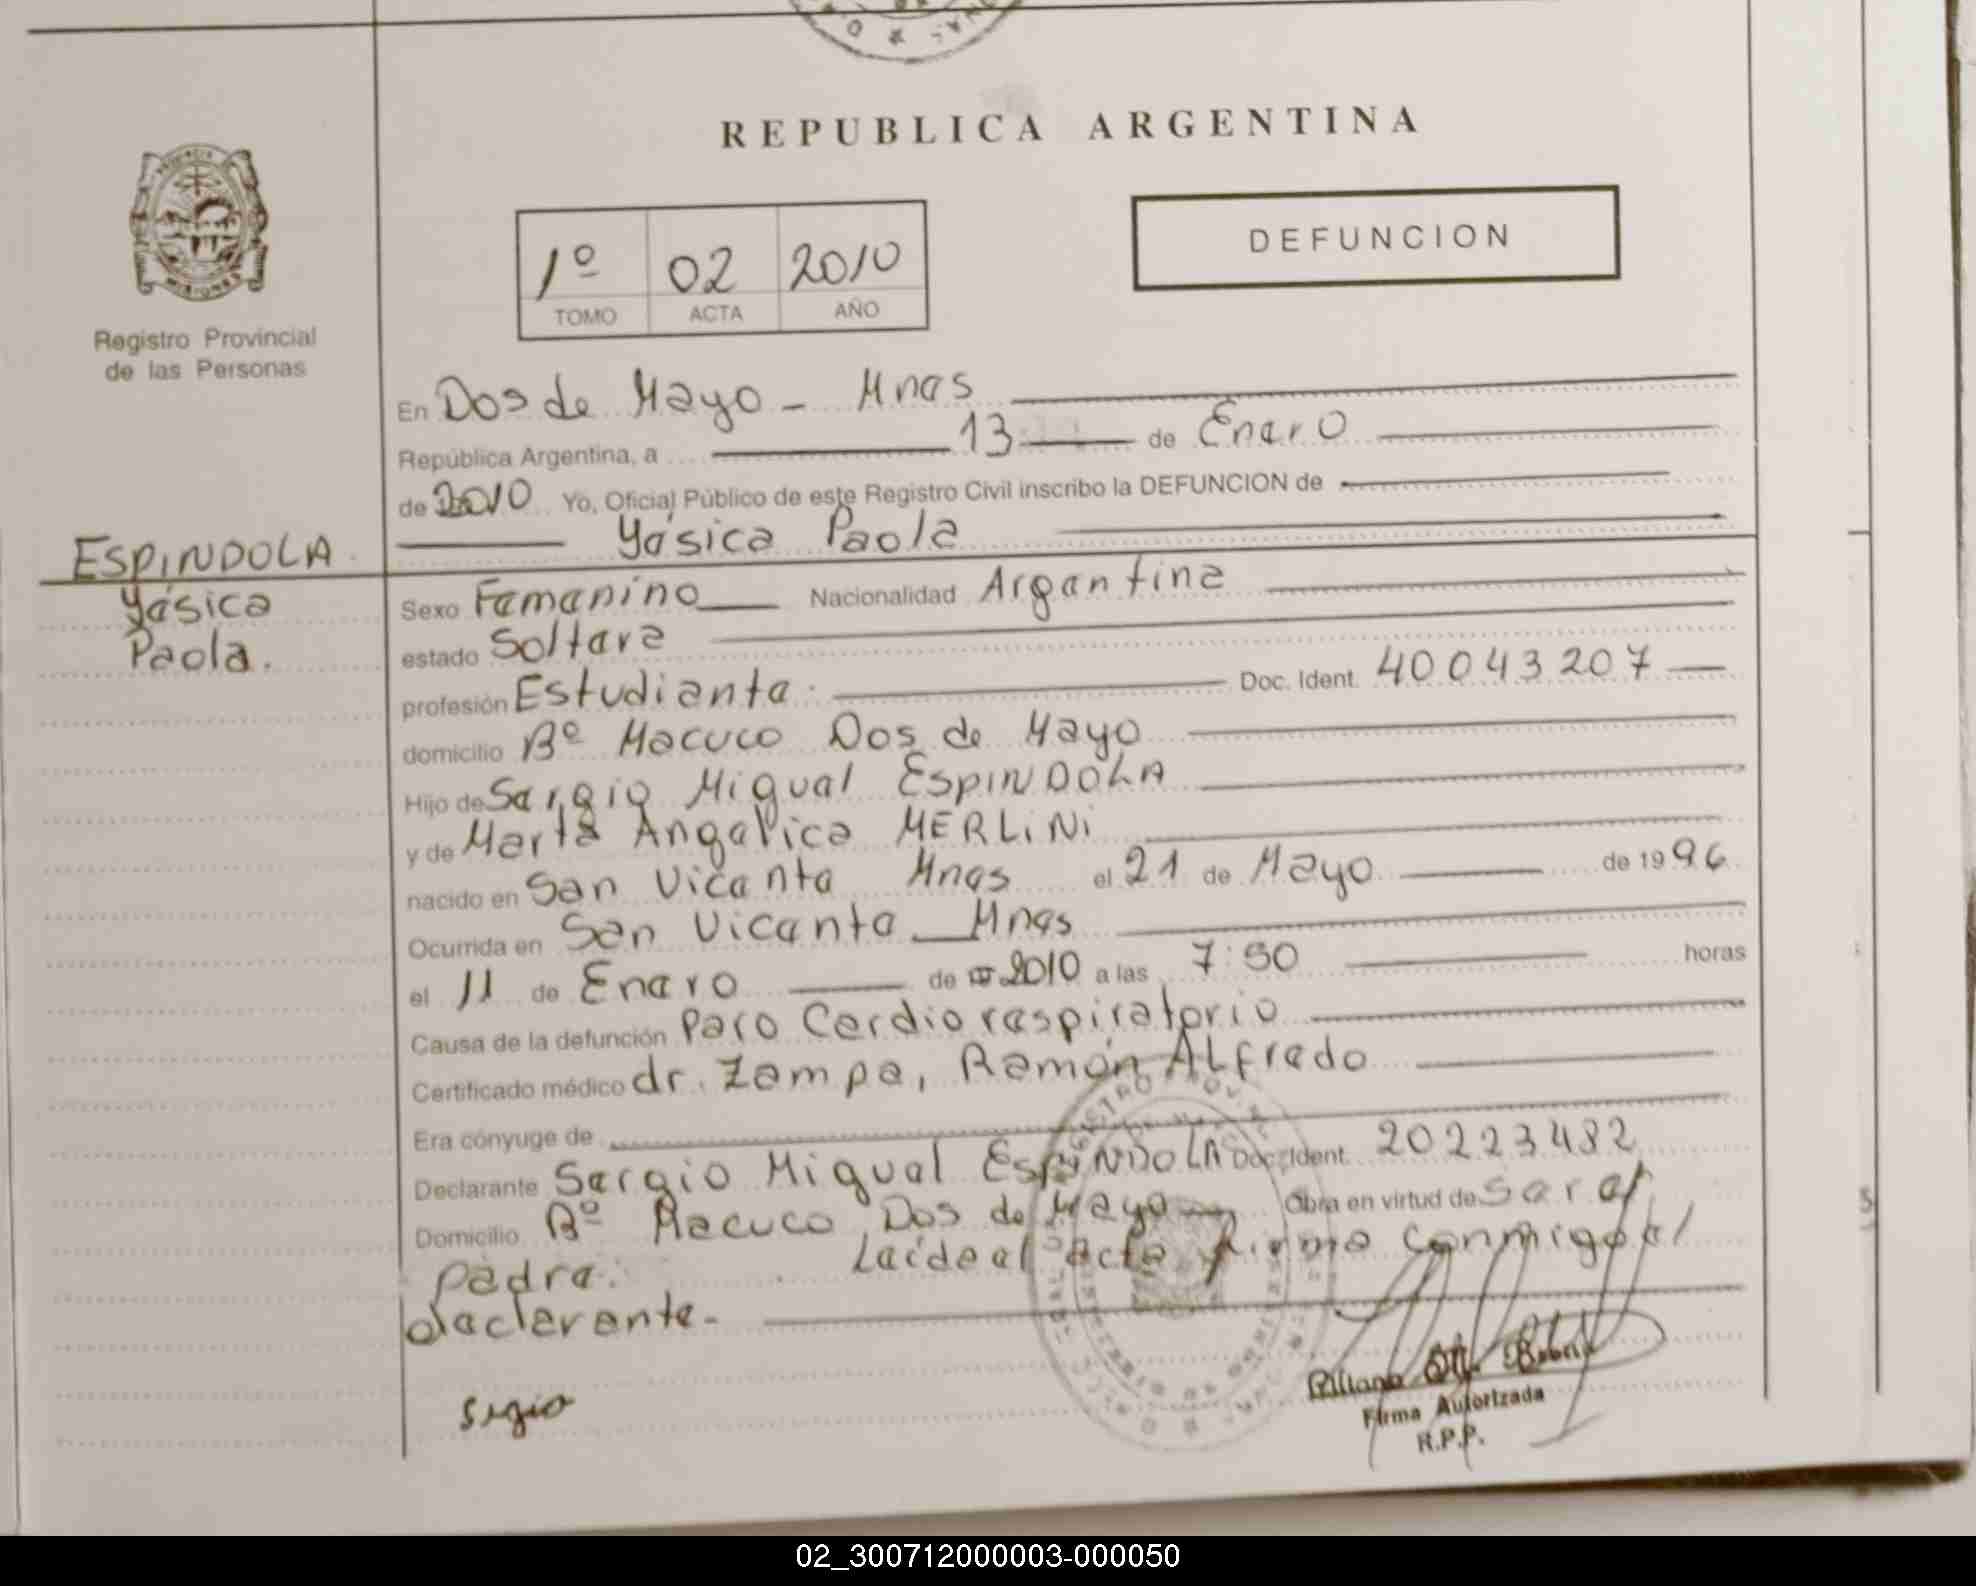 REPUBLICA ARGENTINA
DEFUNCION
1º 02 2010
TOMO ACTA AÑO
Registro Provincial
de las Personas
En Dos de Mayo - Mnes
República Argentina, a 13 de Enero
de 2010 Yo, Oficial Público de este Registro Civil inscribo la DEFUNCION de
Yésica Paola
ESPINDOLA
Yésica
Paola.
Sexo Femenino Nacionalidad Argentina
estado Soltera
profesión Estudiante. Doc. Ident. 40043207
domicilio Bº Macuco Dos de Mayo
Hijo de Sergio Miguel ESPINDOLA
y de Marta Angelica MERLINI
nacido en San Vicente Mnes el 21 de Mayo de 1996
Ocurrida en San Vicente Mnes
el 11 de Enero de 2010 a las 7:50 horas
Causa de la defunción Paro Cardiorespiratorio
Certificado médico dr. Zampa, Ramón Alfredo
Era cónyuge de
Declarante Sergio Miguel ESPINDOLA Doc. Ident. 20223482
Domicilio Bº Macuco Dos de Mayo Obra en virtud de Ser el
padre. Leída el acta firma conmigo el
declarante.-
Firma Autorizada
R.P.P.
02_300712000003-000050